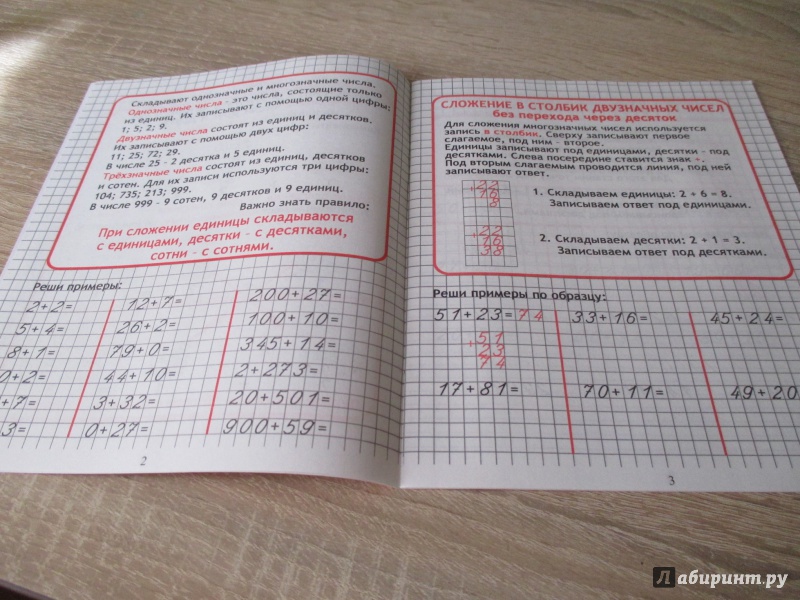 Складывают однозначные и многозначные числа.
Однозначные числа - это числа, состоящие только
из единиц. Их записывают с помощью одной цифры:
1; 5; 2; 9.
Двузначные числа состоят из единиц и десятков.
Их записывают с помощью двух цифр:
11; 25; 72; 29.
В числе 25 - 2 десятка и 5 единиц.
Трёхзначные числа состоят из единиц, десятков
и сотен. Для их записи используются три цифры:
104; 735; 213; 999.
В числе 999 - 9 сотен, 9 десятков и 9 единиц.
Важно знать правило:
При сложении единицы складываются
с единицами, десятки - с десятками,
сотни - с сотнями.
Реши примеры:
2+2= 12+7= 200+27=
5+4= 26+2= 100+10=
8+1= 79+0= 345+14=
0+2= 44+10= 2+273=
+7= 3+32= 20+501=
3= 0+27= 900+59=
2
СЛОЖЕНИЕ В СТОЛБИК ДВУЗНАЧНЫХ ЧИСЕЛ
без перехода через десяток
Для сложения многозначных чисел используется
запись в столбик. Сверху записывают первое
слагаемое, под ним - второе.
Единицы записывают под единицами, десятки - под
десятками. Слева посередине ставится знак +.
Под вторым слагаемым проводится линия, под ней
записывают ответ.
22
+16
8
1. Складываем единицы: 2 + 6 = 8.
Записываем ответ под единицами.
22
+16
38
2. Складываем десятки: 2 + 1 = 3.
Записываем ответ под десятками.
Реши примеры по образцу:
51+23=74 33+16= 45+24=
51
+23
74
17+81= 70+11= 49+20
3
Лабиринт.ру